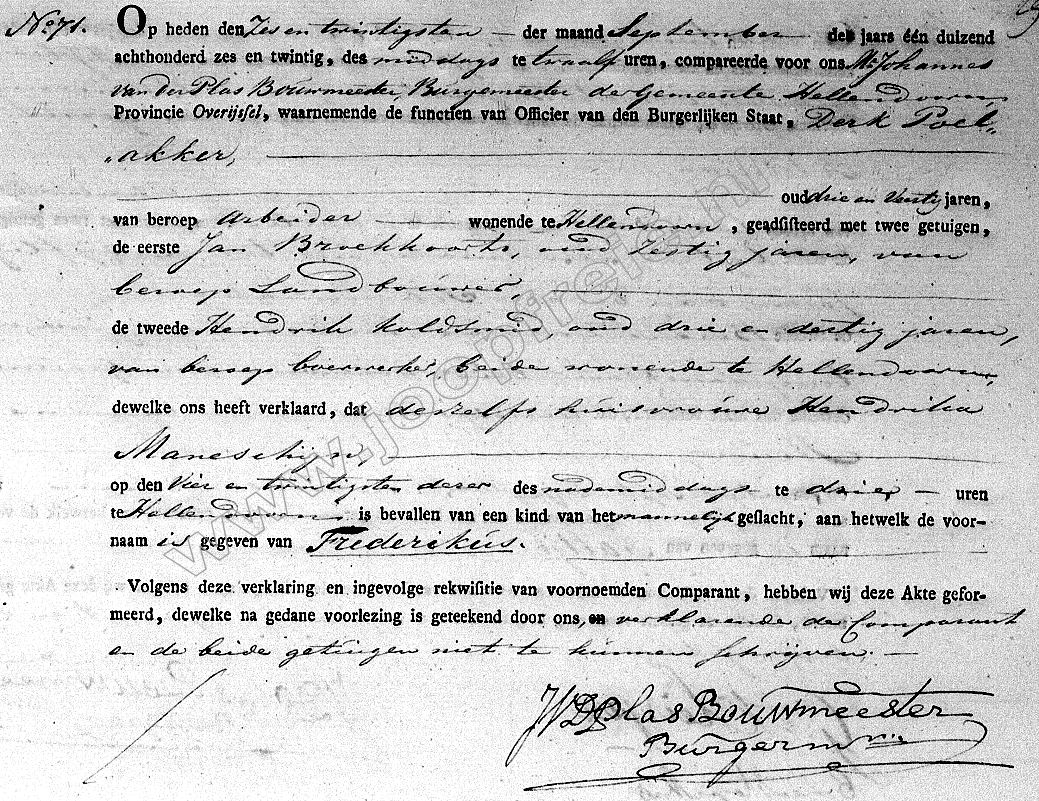 No 71. Op heden den Zes en twintigsten — der maand September des jaars één duizend
achthonderd zes en twintig, des middags te twaalf uren, compareerde voor ons Mr Johannes
van der Plas Bouwmeester, Burgemeester der Gemeente Hellendoorn,
Provincie Overijssel, waarnemende de functien van Officier van den Burgerlijken Staat, Derk Poel„
„akker,
oud drie en veertig jaren,
van beroep Arbeider — wonende te Hellendoorn, geadsisteerd met twee getuigen,
de eerste Jan Broekhoorts, oud Zestig jaren, van
beroep Landbouwer,
de tweede Hendrik Koldsmid oud drie en dertig jaren,
van beroep boerwerker, beide wonende te Hellendoorn,
dewelke ons heeft verklaard, dat deszelfs huisvrouwe Hendrika
Maneschijn,
op den Vier en twintigsten dezer des nademiddags te drie — uren
te Hellendoorn is bevallen van een kind van het mannelijk geslacht, aan hetwelk de voor-
naam is gegeven van Frederikus.
Volgens deze verklaring en ingevolge rekwisitie van voornoemden Comparant, hebben wij deze Akte gefor-
meerd, dewelke na gedane voorlezing is geteekend door ons, en verklarende de Comparant
en de beide getuigen niet te kunnen schrijven. —
JVDPlas Bouwmeester
Burgerm
www.joopreik.nl